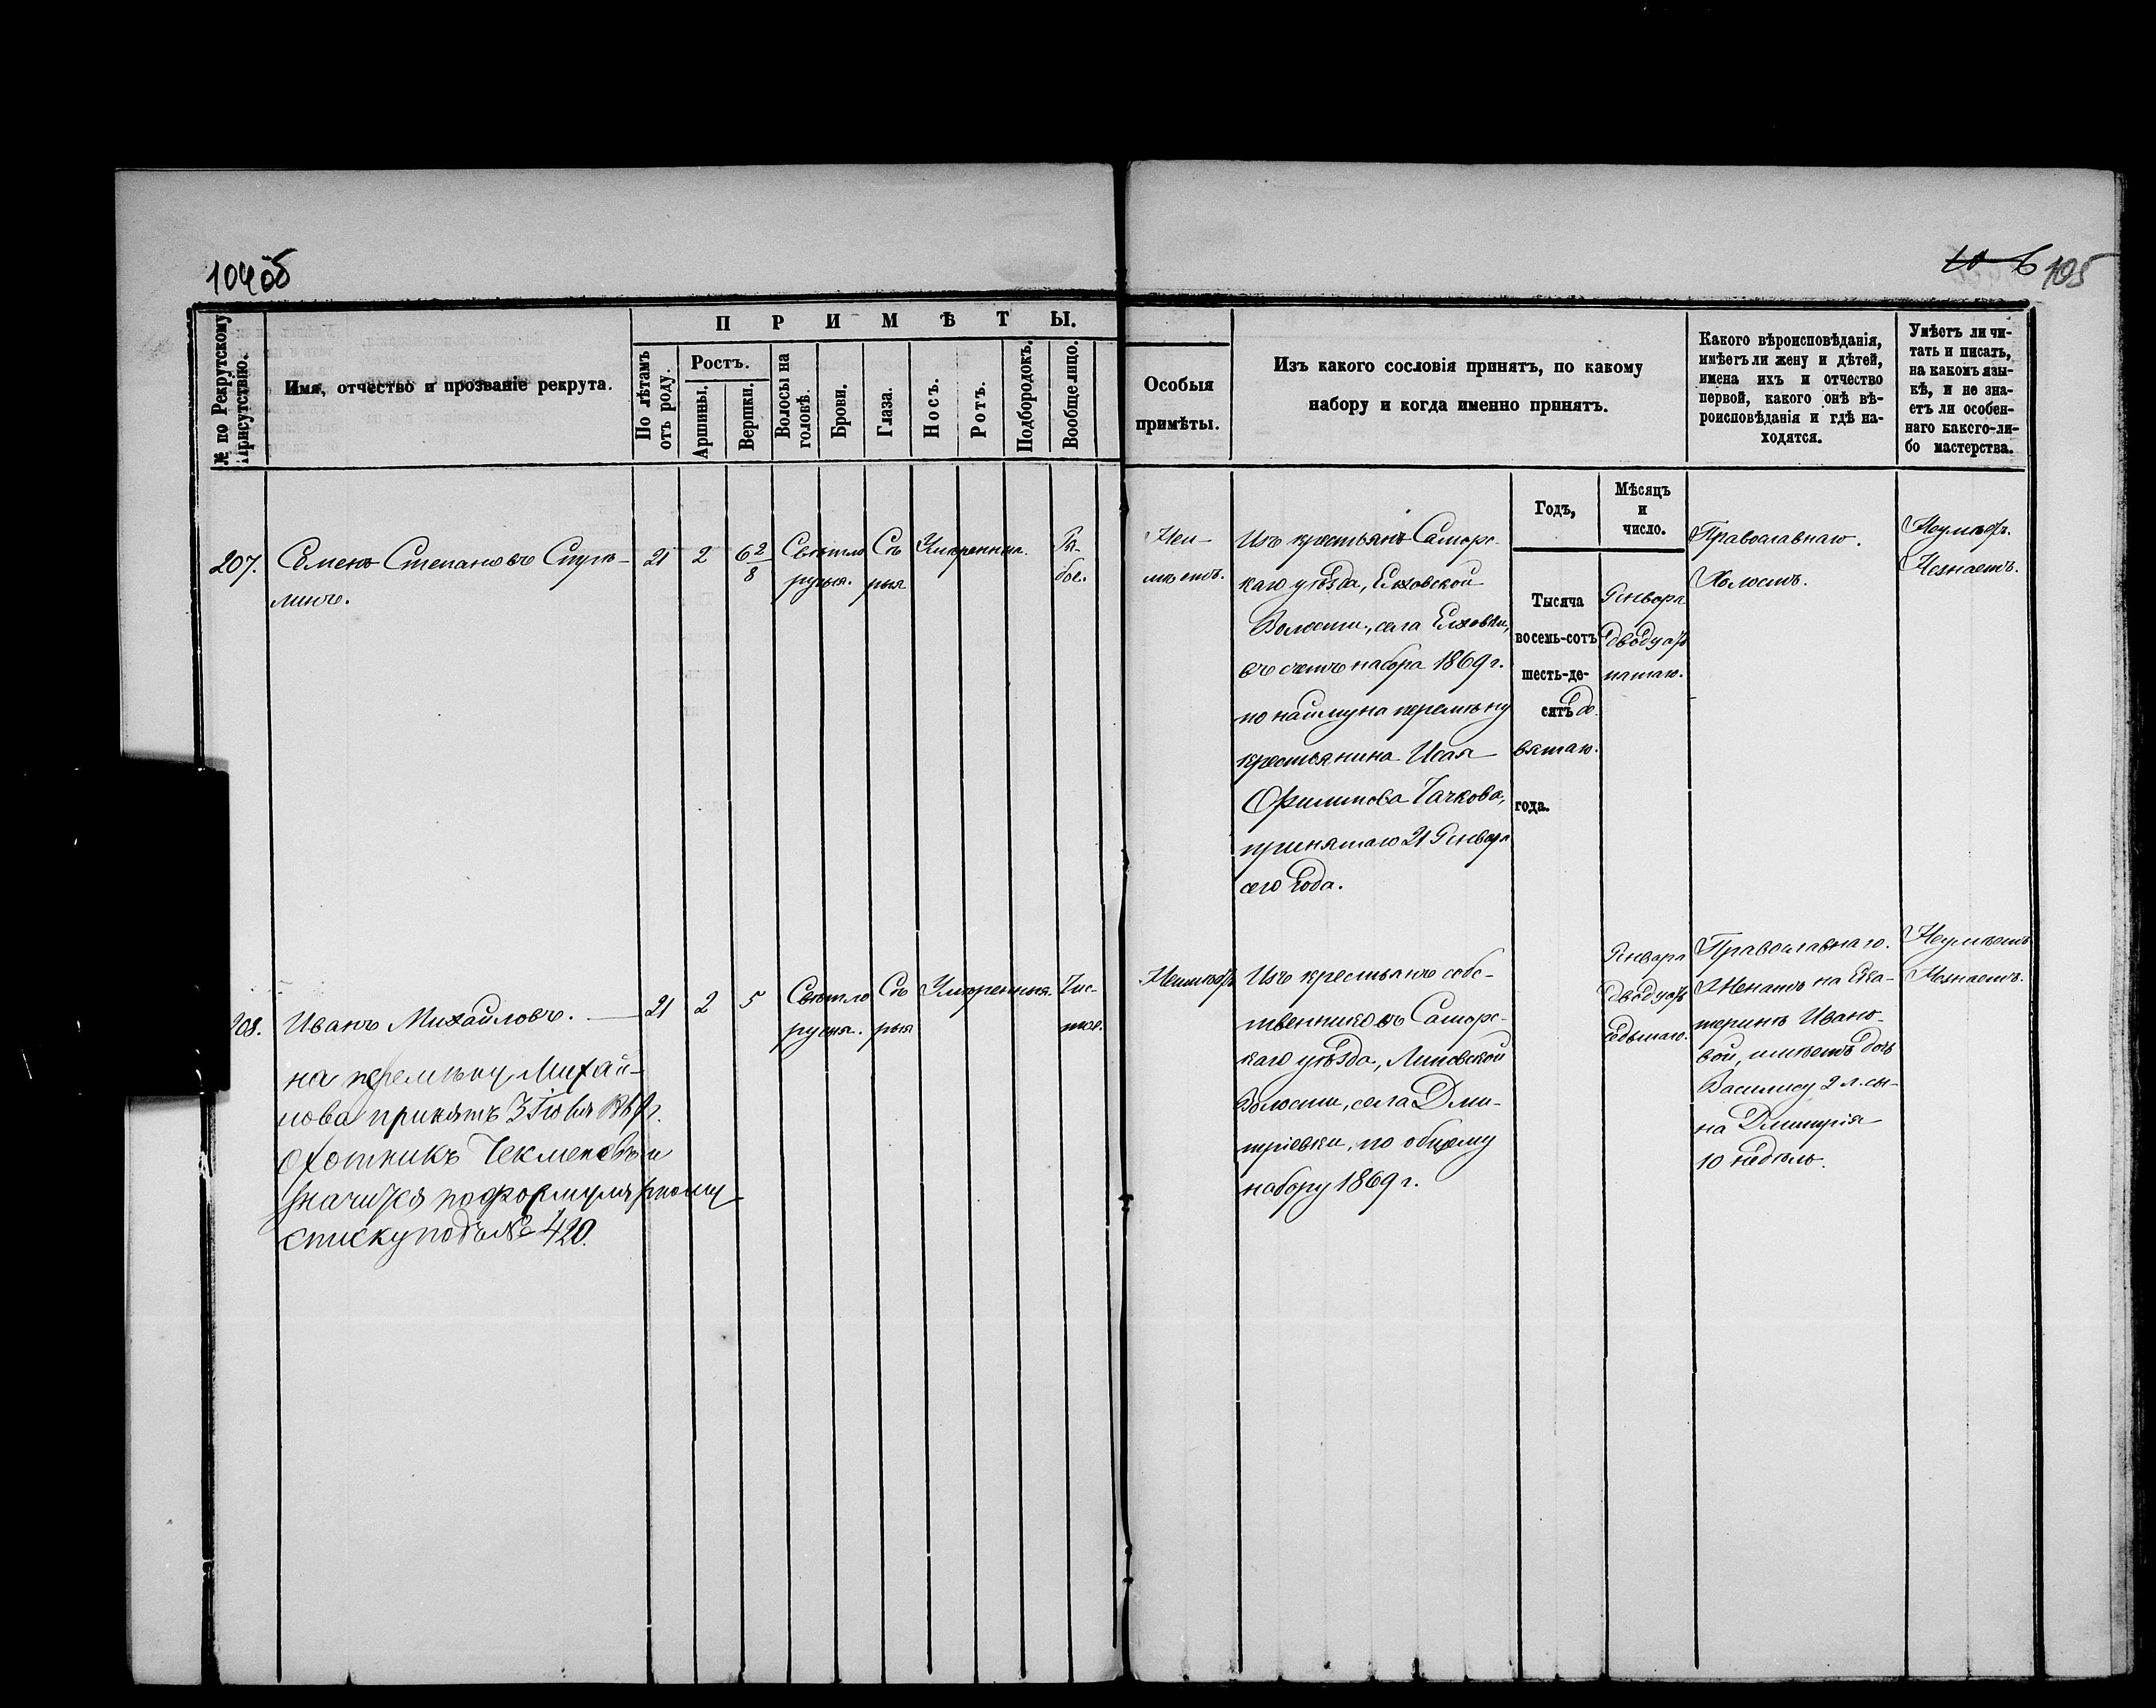 104об
10 6 105
№ по Рекрутскому Присутствію.
Имя, отчество и прозваніе рекрута.
ПРИМѢТЫ.
По лѣтамъ отъ роду.
Ростъ.
Аршины.
Вершки.
Волосы на головѣ.
Брови.
Глаза.
Носъ.
Ротъ.
Подбородокъ.
Вообще лицо.
Особыя
примѣты.
Изъ какого сословія принятъ, по какому
набору и когда именно принятъ.
Какого вѣроисповѣданія,
имѣетъ ли жену и дѣтей,
имена ихъ и отчество
первой, какого онѣ вѣ-
роисповѣданія и гдѣ на-
ходятся.
Умѣетъ ли чи-
тать и писать,
на какомъ язы-
кѣ, и не зна-
етъ ли особен-
наго какого-ли-
бо мастерства.
Годъ,
Мѣсяцъ
и
число.
207.
Семенъ Степановъ
линъ.
21
2
6 2/8
Свѣтло
русыя.
Сѣ
рыя
Умѣренныя.
Ря-
бое.
Неи-
мѣетъ.
Изъ крестьянъ Самарс-
каго уѣзда, Елховской
Волости, села Елховки,
въ счетъ набора 1869 г.
по найму на перемѣну
крестьянина Исая
Филипова Чачкова,
принятаго 21 Января
сего года.
Тысяча
восемь-сотъ
шесть-де-
сятъ де
вятаго.
года.
Января
двадцать
пятаго.
Православнаго.
Холостъ.
Неумѣетъ.
Незнаетъ.
208.
Иванъ Михайловъ.
на перемѣну Михай-
лова принятъ 3
охотникъ Чекменевъ и
значится по формулярному
списку подъ № 420.
21
2
5
Свѣтло
русыя.
Сѣ
рыя
Умѣренныя.
Чис-
тое.
Неимѣетъ
Изъ крестьянъ собс-
твенниковъ Самарс-
каго уѣзда, Липовской
Волости, села Дми-
тріевки, по общему
набору 1869 г.
Января
двадцать
седьмаго.
Православнаго.
Женатъ на Ека-
теринѣ Ивано-
вой, имѣетъ дочь
Василису 2 л. сы-
на Дмитрія
10 недѣль.
Неумѣетъ
Незнаетъ.